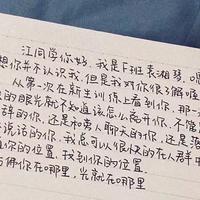 江同学你好，我是F班袁湘琴，嗯
想你并不认识我，但是我对你很了解喔
从第一次在新生训练上看到你，那一
的眼光就不知道该怎么离开你，不管
辞的你，还是和旁人聊天的你，还是
说话的你，我总可以很快的在人群中
位置，找到你的位置
彷彿你在哪里，光就在哪里